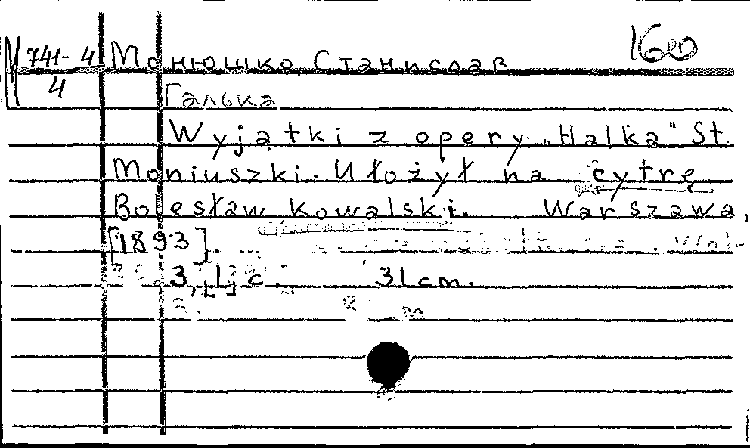 160
М 741-4
4
Монюшко Станислав
Галька
Wyjątki z opery „Halka" St.
Moniuszki. Ułożył na cytrę
Bolesław Kowalski. Warszawa,
[1893].
3, [1] c. 31 cm.